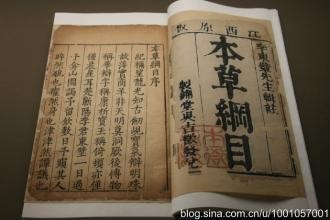 江西原板
李東璧先生輯註
本草綱目
本草綱目序
紀稱望龍光知古劍覘寶氣辯明珠
故萍實商羊非天明莫洞厥後博物
稱華辯字稱康析寶玉稱倚頓亦僅
僅晨星耳楚蘄陽李君東璧一日過
予弇山園謁予留飲數日予窺其人
睟然貌也癯然身也津津然譚議也
blog.sina.com.cn/u/1001057001